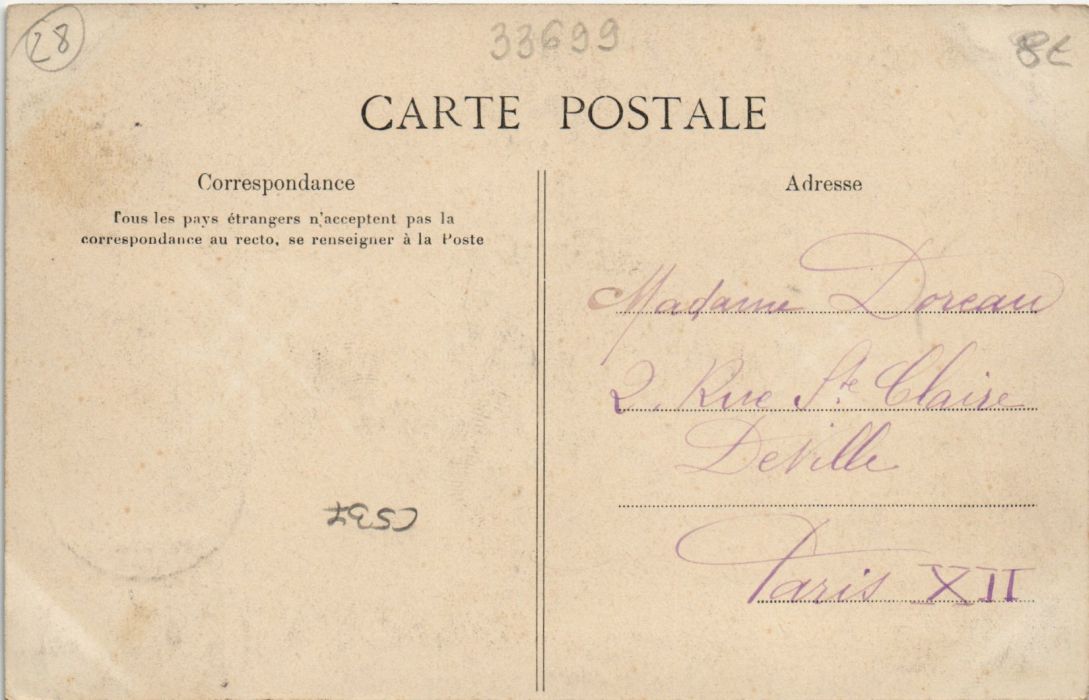 28
33699
8€
CARTE POSTALE
Correspondance
Tous les pays étrangers n'acceptent pas la
correspondance au recto, se renseigner à la Poste
Adresse
Madame Doreau
2. Rue Ste Claire
DeVille
Paris XII